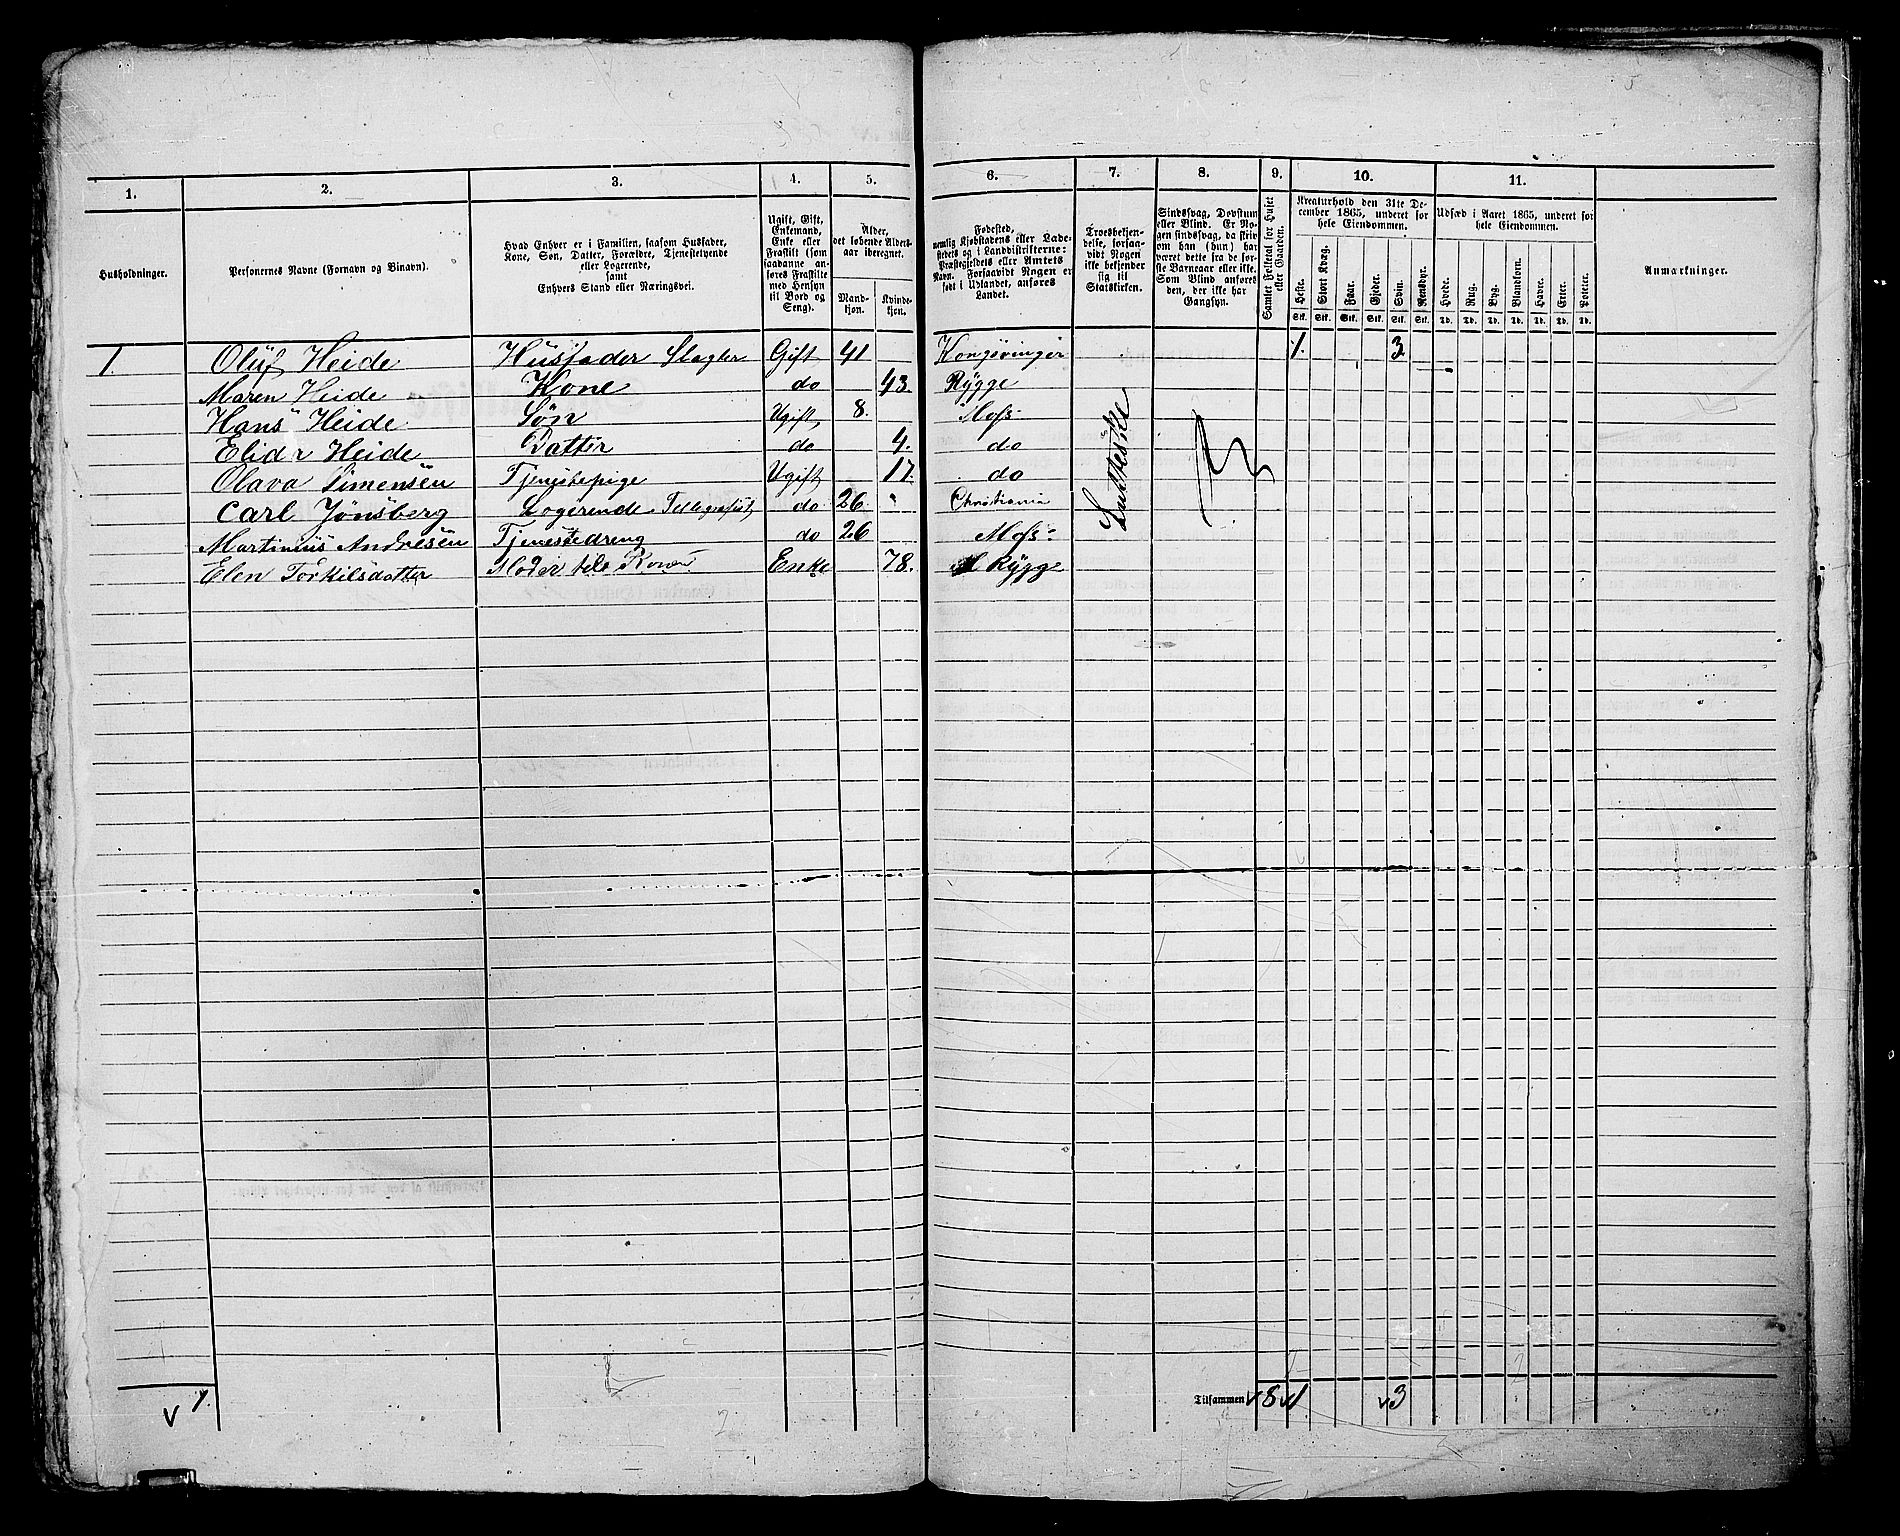 1. 2. 3. 4. 5. 6. 7. 8. 9. 10. 11.
Husholdninger.
Personernes Navne (Fornavn og Binavn).
Hvad Enhver er i Familien, saasom Husfader,
Kone, Søn, Datter, Forældre, Tjenestetyende
eller Logerende,
samt
Enhvers Stand eller Næringsvei.
Ugift, Gift,
Enkemand,
Enke eller
Fraskilt (som
saadanne an-
føres Fraskilte
med Hensyn
til Bord og
Seng).
Alder,
det løbende Alders-
aar iberegnet.
Mand-
kjøn.
Kvinde-
kjøn.
Fødested,
nemlig Kjøbstadens eller Lade-
stedets og i Landdistrikterne:
Præstegjeldets eller Amtets
Navn. Forsaavidt Nogen er
født i Udlandet, anføres
Landet.
Troesbekjen-
delse, forsaa-
vidt Nogen
ikke bekjender
sig til
Statskirken.
Sindssvag, Døvstum
eller Blind. Er No-
gen sindssvag, da skriv
om han (hun) har
været dette fra de før-
ste Barneaar eller ikke.
Som Blind anføres
den, der ikke har
Gangsyn.
Samlet Folketal for Huset
eller Gaarden.
Kreaturhold den 31te De-
cember 1865, underet for
hele Eiendommen.
Heste. Stort Kvæg. Faar. Gjeder. Svin. Rensdyr.
Stk. Stk. Stk. Stk. Stk. Stk.
Udsæd i Aaret 1865, underet for
hele Eiendommen.
Hvede. Rug. Byg. Blandkorn. Havre. Erter. Poteter.
Td. Td. Td. Td. Td. Td. Td.
Anmærkninger.
1. Oluf Heide Husfader Slagter Gift 41 Kongsvinger 1. 3
Maren Heide Kone do 43. Rygge
Hans Heide Søn Ugift 8. Moss
Elida Heide Datter do 4. do
Olava Simensen Tjenestepige Ugift 17. do
Carl Jønsberg Logerende Tellegrafist do 26 " Christiania
Martinius Andresen Tjenestedreng do 26 Moss
Elen Torkilsdatter Moder til Konen Enke 78. Rygge
Lutterske
1.
Tilsammen 8 1 3